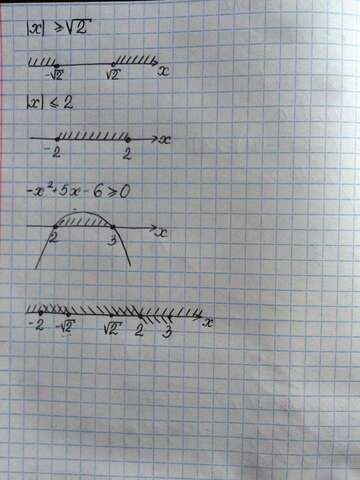 |x| ⩾ √2
-√2 √2 x
|x| ⩽ 2
-2 2 x
-x²+5x-6⩾0
2 3 x
-2 -√2 √2 2 3 x